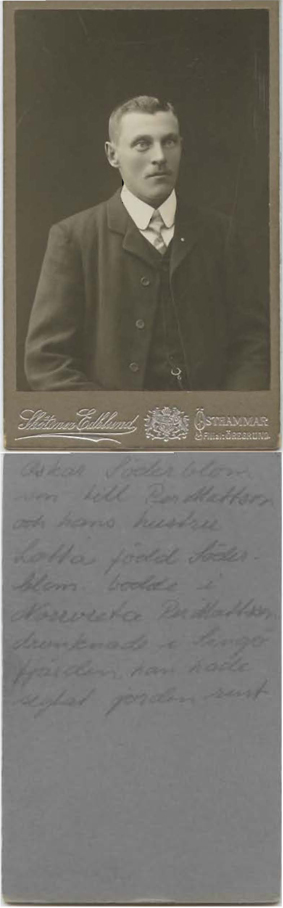 Skötner-Edhlund
ÖSTHAMMAR
& Filial ÖREGRUND.
Oskar Söderblom
son till Per Mattsson
och hans hustru
Lotta född Söder-
blom. bodde i
Norrvreta Per Mattsson
drunknade i Singö
fjärden, han hade
seglat jorden runt